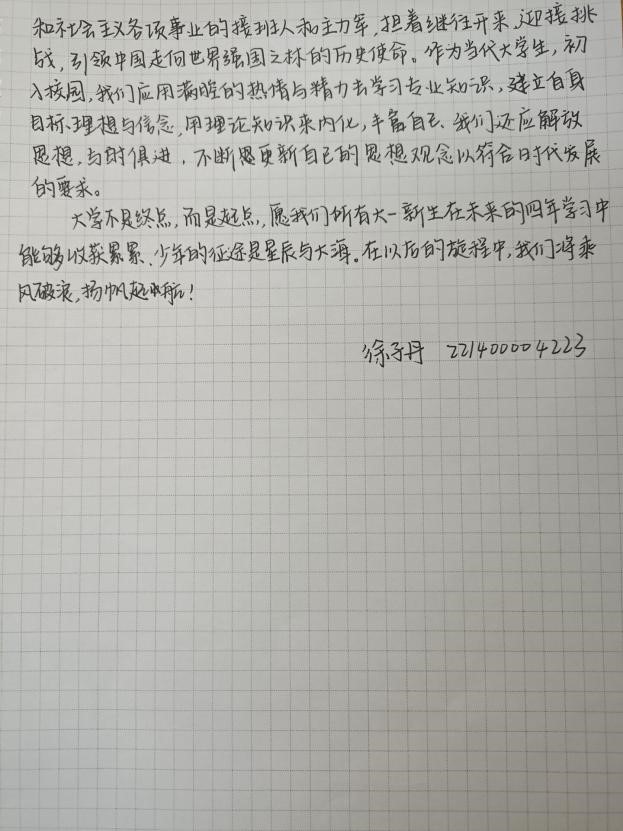 和社会主义各项事业的接班人和主力军,担着继往开来、迎接挑
战,引领中国走向世界强国之林的历史使命。作为当代大学生,初
入校园,我们应用满腔的热情与精力去学习专业知识,建立自身
目标、理想与信念,用理论知识来内化,丰富自己、我们还应解放
思想,与时俱进,不断更新自己的思想观念以符合时代发展
的要求。
大学不是终点,而是起点,愿我们所有大一新生在未来的四年学习中
能够收获累累、少年的征途是星辰与大海。在以后的旅程中,我们将乘
风破浪,扬帆起航!
徐子丹 221400004223